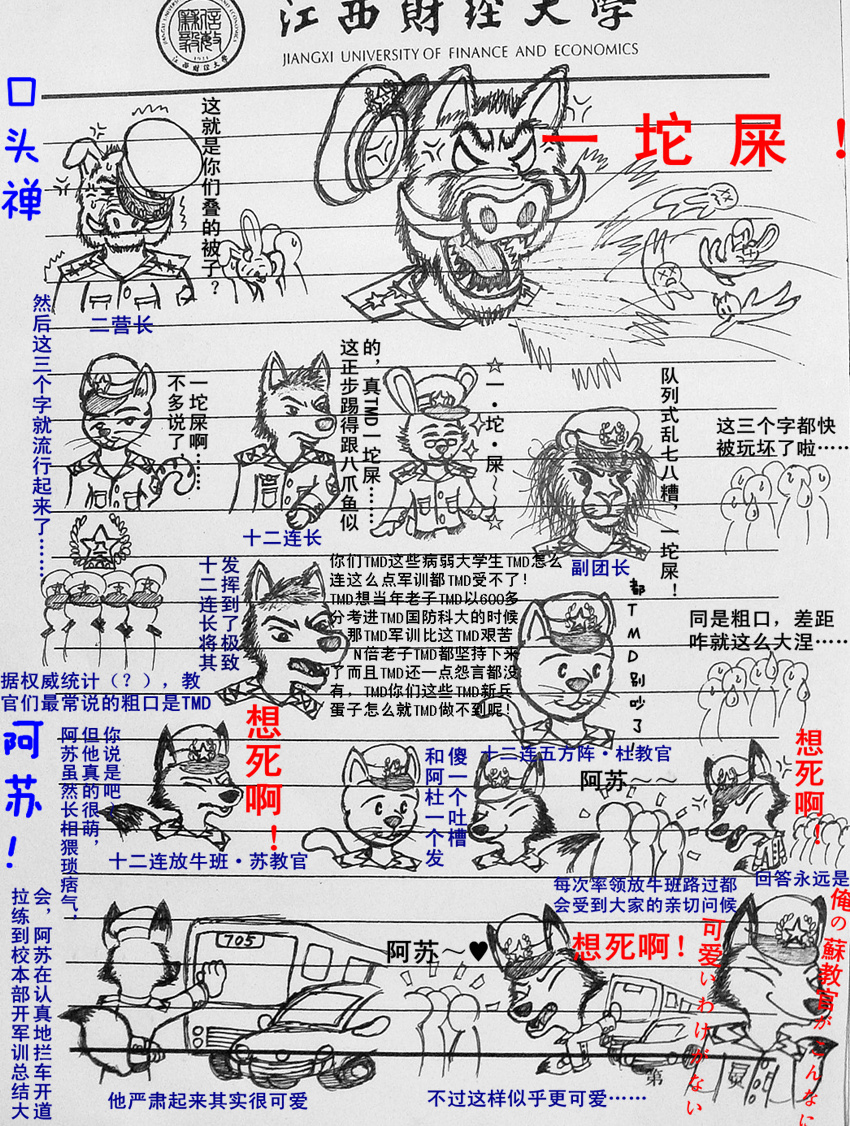 江西財経大学
JIANGXI UNIVERSITY OF FINANCE AND ECONOMICS
口头禅
这就是你们叠的被子？
一坨屎！
二营长
然后这三个字就流行起来了……
一坨屎啊……
不多说了，
十二连长
的，真TMD一坨屎……
这正步踢得跟八爪鱼似
☆一·坨·屎～～☆
队列式乱七八糟，一坨屎！
副团长
这三个字都快
被玩坏了啦……
据权威统计（？），教
官们最常说的粗口是TMD
发挥到了极致
十二连长将其
你们TMD这些病弱大学生TMD怎么
连这么点军训都TMD受不了！
TMD想当年老子TMD以600多
分考进TMD国防科大的时候
，那TMD军训比这TMD艰苦
N倍老子TMD都坚持下来
了而且TMD还一点怨言都没
有，TMD你们这些TMD新兵
蛋子怎么就TMD做不到呢！
都TMD别吵了！
同是粗口，差距
咋就这么大涅……
十二连五方阵·杜教官
阿苏！
你说是吧
但他真的很萌，
阿苏虽然长相猥琐痞气，
想死啊！
十二连放牛班·苏教官
傻一个吐槽
和阿杜一个发
阿苏～～
每次率领放牛班路过都
会受到大家的亲切问候
想死啊！
回答永远是
会，阿苏在认真地拦车开道
拉练到校本部开军训总结大
705
他严肃起来其实很可爱
阿苏～♥
想死啊！
不过这样似乎更可爱……
俺の蘇教官がこんなに
可愛いわけがない
第
页